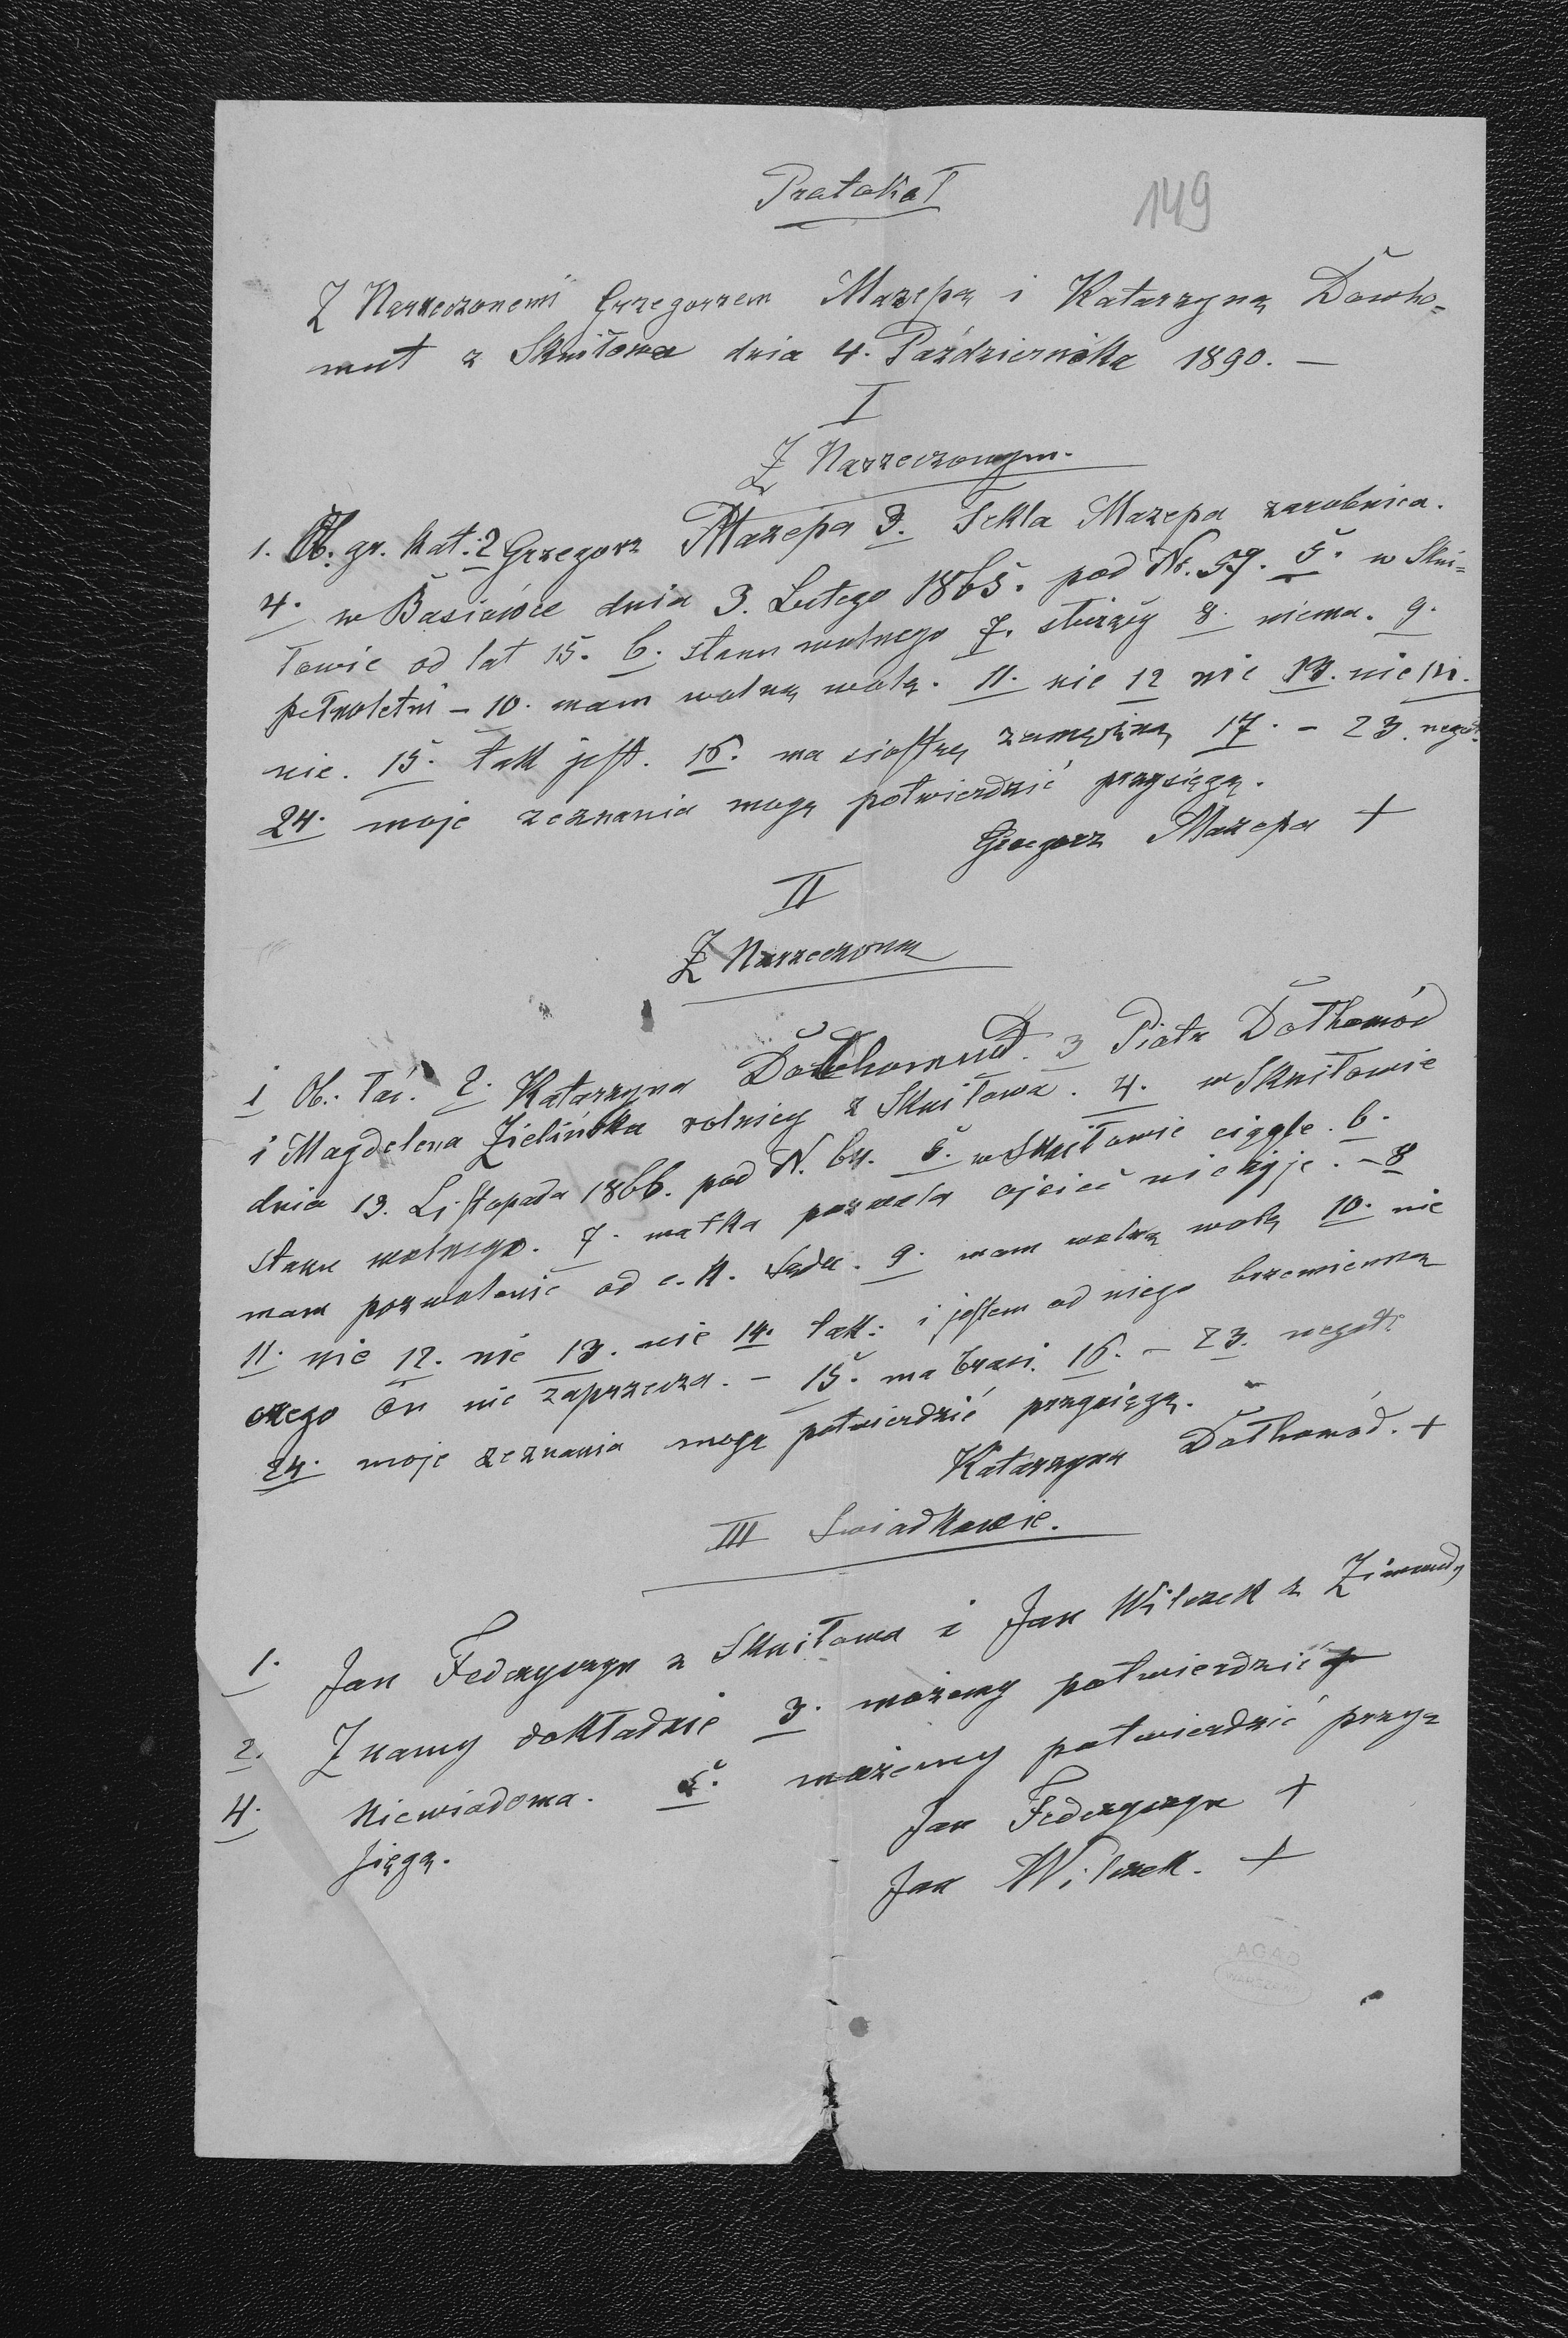 Protokoł
149
Z Narzeczonemi Grzegorzem Mazepą i Katarzyną Dowho=
mut z Skniłowa dnia 4. Października 1890. —
I
Z Narzeczonym.
1. Ob. gr. kat: 2 Grzegorz Mazepa 3. Tekla Mazepa zarobnica.
4. w Basiówce dnia 3. Lutego 1865. pod Nr. 57. 5. w Skni=
łowie od lat 15. 6. stanu wolnego 7. służący 8. niema. 9.
pełnoletni – 10. mam wolną wolę. 11. nie 12 nie 13. nie 14.
nie. 15. tak jest. 16. ma siostrę zamężną 17. – 23. negat.
24. moje zeznania mogę potwierdzić przysięgą.
Grzegorz Mazepa +
II
Z Narzeczoną
1 Ob. łac. 2. Katarzyna 3 Piotr Dołhomód
i Magdelena Zielińska rolnicy z Skniłowa. 4. w Skniłowie
dnia 13. Listopada 1866. pod N. 64. 5. w Skniłowie ciągle. 6.
stanu wolnego. 7. matka pozwala ojcieć nie żyje. – 8
mam pozwolenie od c. k. Sądu. 9. mam wolną wolę 10. nie
11. nie 12. nie 13. nie 14. tak: i jestem od niego brzemienną
czego on nie zaprzecza. – 15. ma braci. 16. – 23. negat.
24. moje zeznania mogę potwierdzić przysięgą.
Katarzyna Dołhomód. +
III Swiadkowie.
1. Jan Federyczyn z Skniłowa i Jan Wilczek z Zimnejw.
2. Znamy dokładnie 3. możemy potwierdzić
4. Niewiadoma. 5. możemy potwierdzić przy=
sięgą.
Jan Federyczyn +
Jan Wilczek. +
AGAD
WARSZAWA